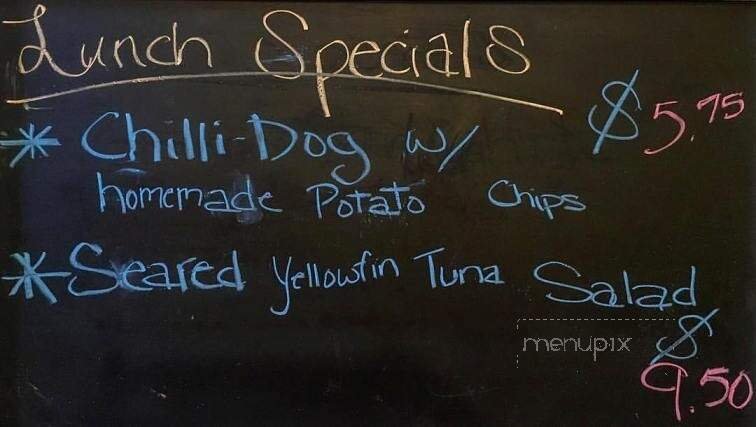 Lunch Specials
* Chilli-Dog w/ $5.75
homemade Potato Chips
* Seared Yellowfin Tuna Salad
menupix $
9.50